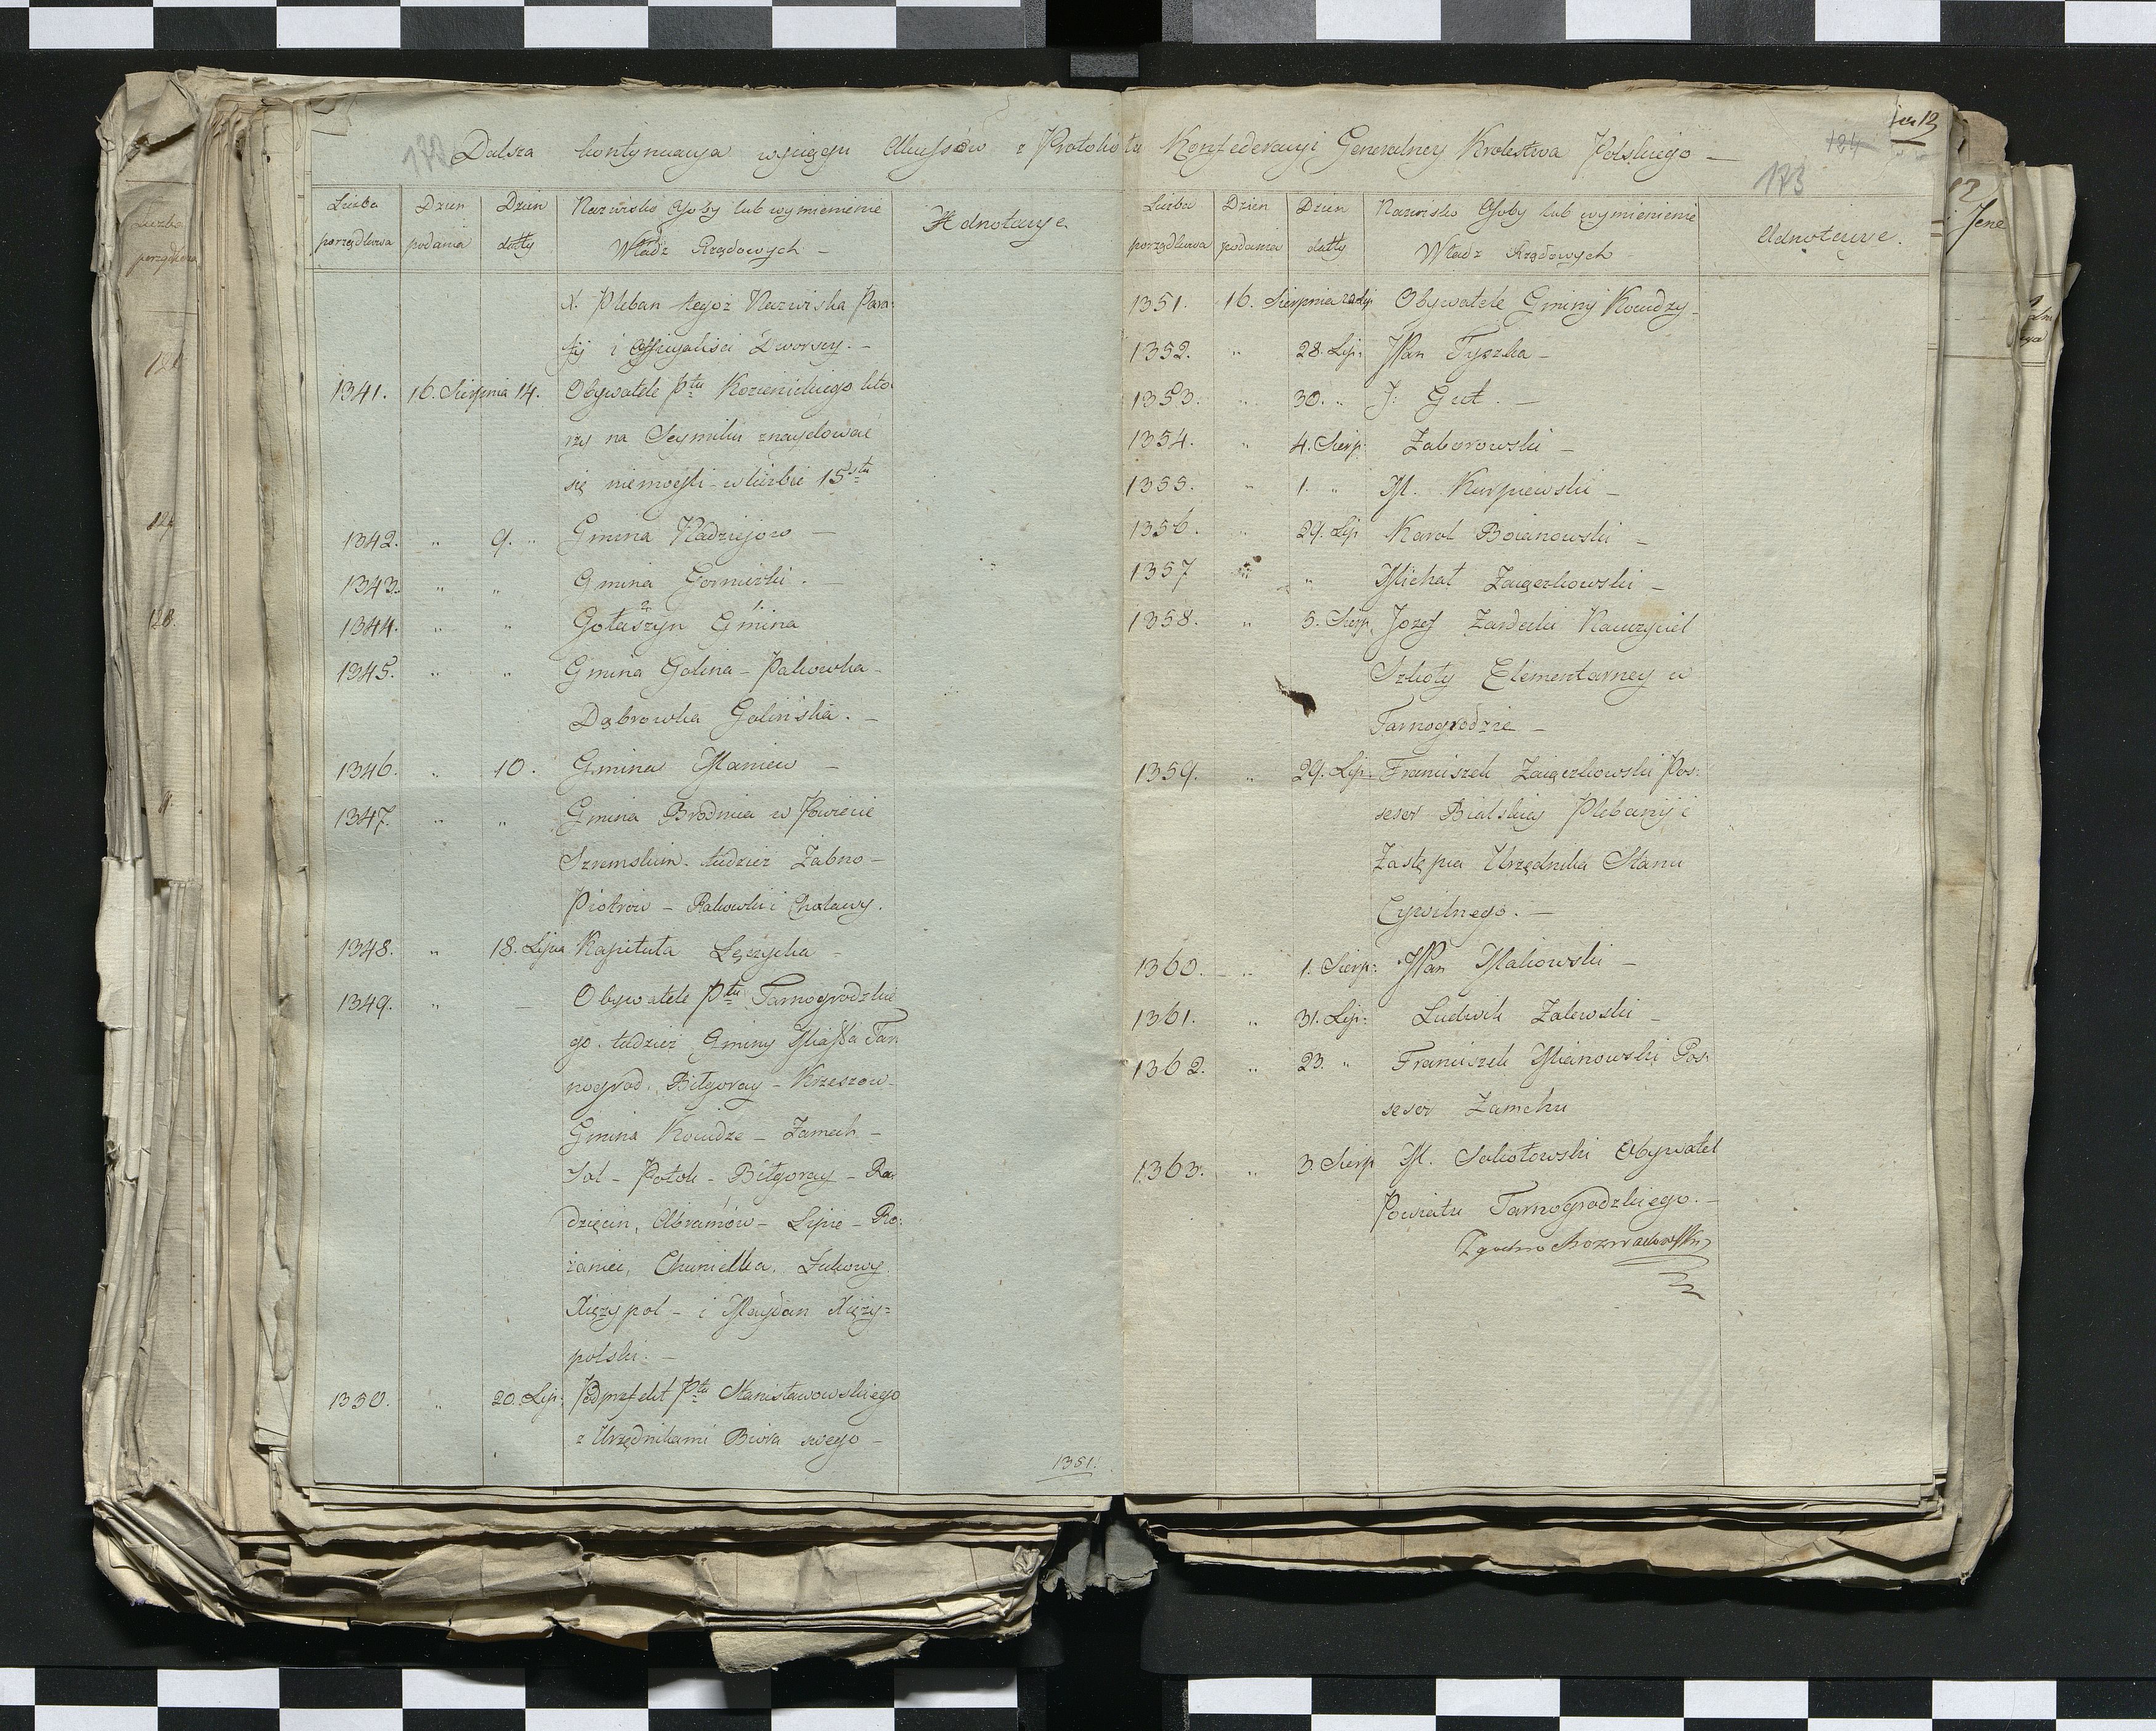 172 Dalsza kontynuacya wyciągu Akcessów z Protokołu Konfederacyi Generalney Krolestwa Polskiego —
173
Liczba porządkowa
Dzien podania
Dzien datty
Nazwisko Osoby lub wymienienie Władz Rządowych —
Adnotacye
X. Pleban tegoż Nazwiska Para-
fij i Officyaliści Dworscy. —
1341. 16. Sierpnia 14. Obywatele Ptu Kozienickiego kto-
rzy na Seymiku znaydować
się niemogli w liczbie 15stu
1342. " 9. " Gmina Nadziejow —
1343. " " Gmina Gorniczki. —
1344. " " Gołaszyn Gmina
1345. " " Gmina Golina — Pakowka —
Dąbrowka Golińska. —
1346. " 10. Gmina Maniew —
1347. " " Gmina Brodnica w Powiecie
Szremskim. tudzież Żabno —
Piotrow — Rakowki i Cholawy.
1348. " 18. Lipca Kapituła Łęczycka —
1349. " — Obywatele Ptu Tarnogrodzkie
go. tudzież Gminy Miasta Tar
nogrod. Biłgoray — Krzeszow —
Gmina Kocudze — Zamech —
Sol — Potok — Biłgoray — Ra-
dzięcin, Abramów — Lipie — Ro:
żaniec, Chmielka. Łukowy.
Xiężypol — i Maydan Xięży=
polski. —
1350. " 20. Lip: Podprefekt Ptu Stanisławowskiego
z Urzędnikami Biura swego —
1351.
Liczba porządkowa
Dzien podania
Dzien datty
Nazwisko Osoby lub wymienienie Władz Rządowych
Adnotacye.
1351. 16. Sierpnia Obywatele Gminy Kocudzy —
1352. " 28. Lip: JPan Tyszka —
1353. " 30. " J: Gut. —
1354. " 4. Sierp: Zaborowski —
1355. " 1. " M. Kurpiewski —
1356. " 29. Lip Karol Boianowski —
1357 " " Michał Zaięczkowski —
1358. " 5. Sierp. Jozef Zardecki Nauczyciel
Szkoły Elementarney w
Tarnogrodzie —
1359. " 29. Lip. Franciszek Zaięczkowski Pos:
sesor Bialskiey Plebanij i
Zastępca Urzędnika Stanu
Cywilnego. —
1360. " 1. Sierp: JPan Makowski —
1361. " 31. Lip: Ludwik Zalewski —
1362. " 23. " Franciszek Mianowski Pos:
sesor Zamchu
1363. " 3. Sierp M. Sokołowski Obywatel
Powiatu Tarnogrodzkiego. —
Zgodno